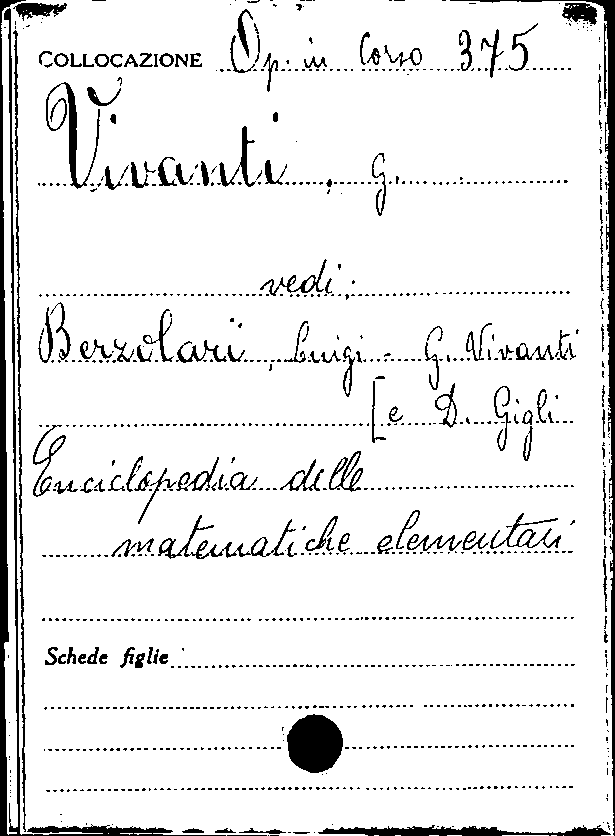 COLLOCAZIONE Op. in Corso 375
Vivanti, G.
vedi:
Berzolari, Luigi - G. Vivanti
[e D. Gigli
Enciclopedia delle
matematiche elementari
Schede figlie